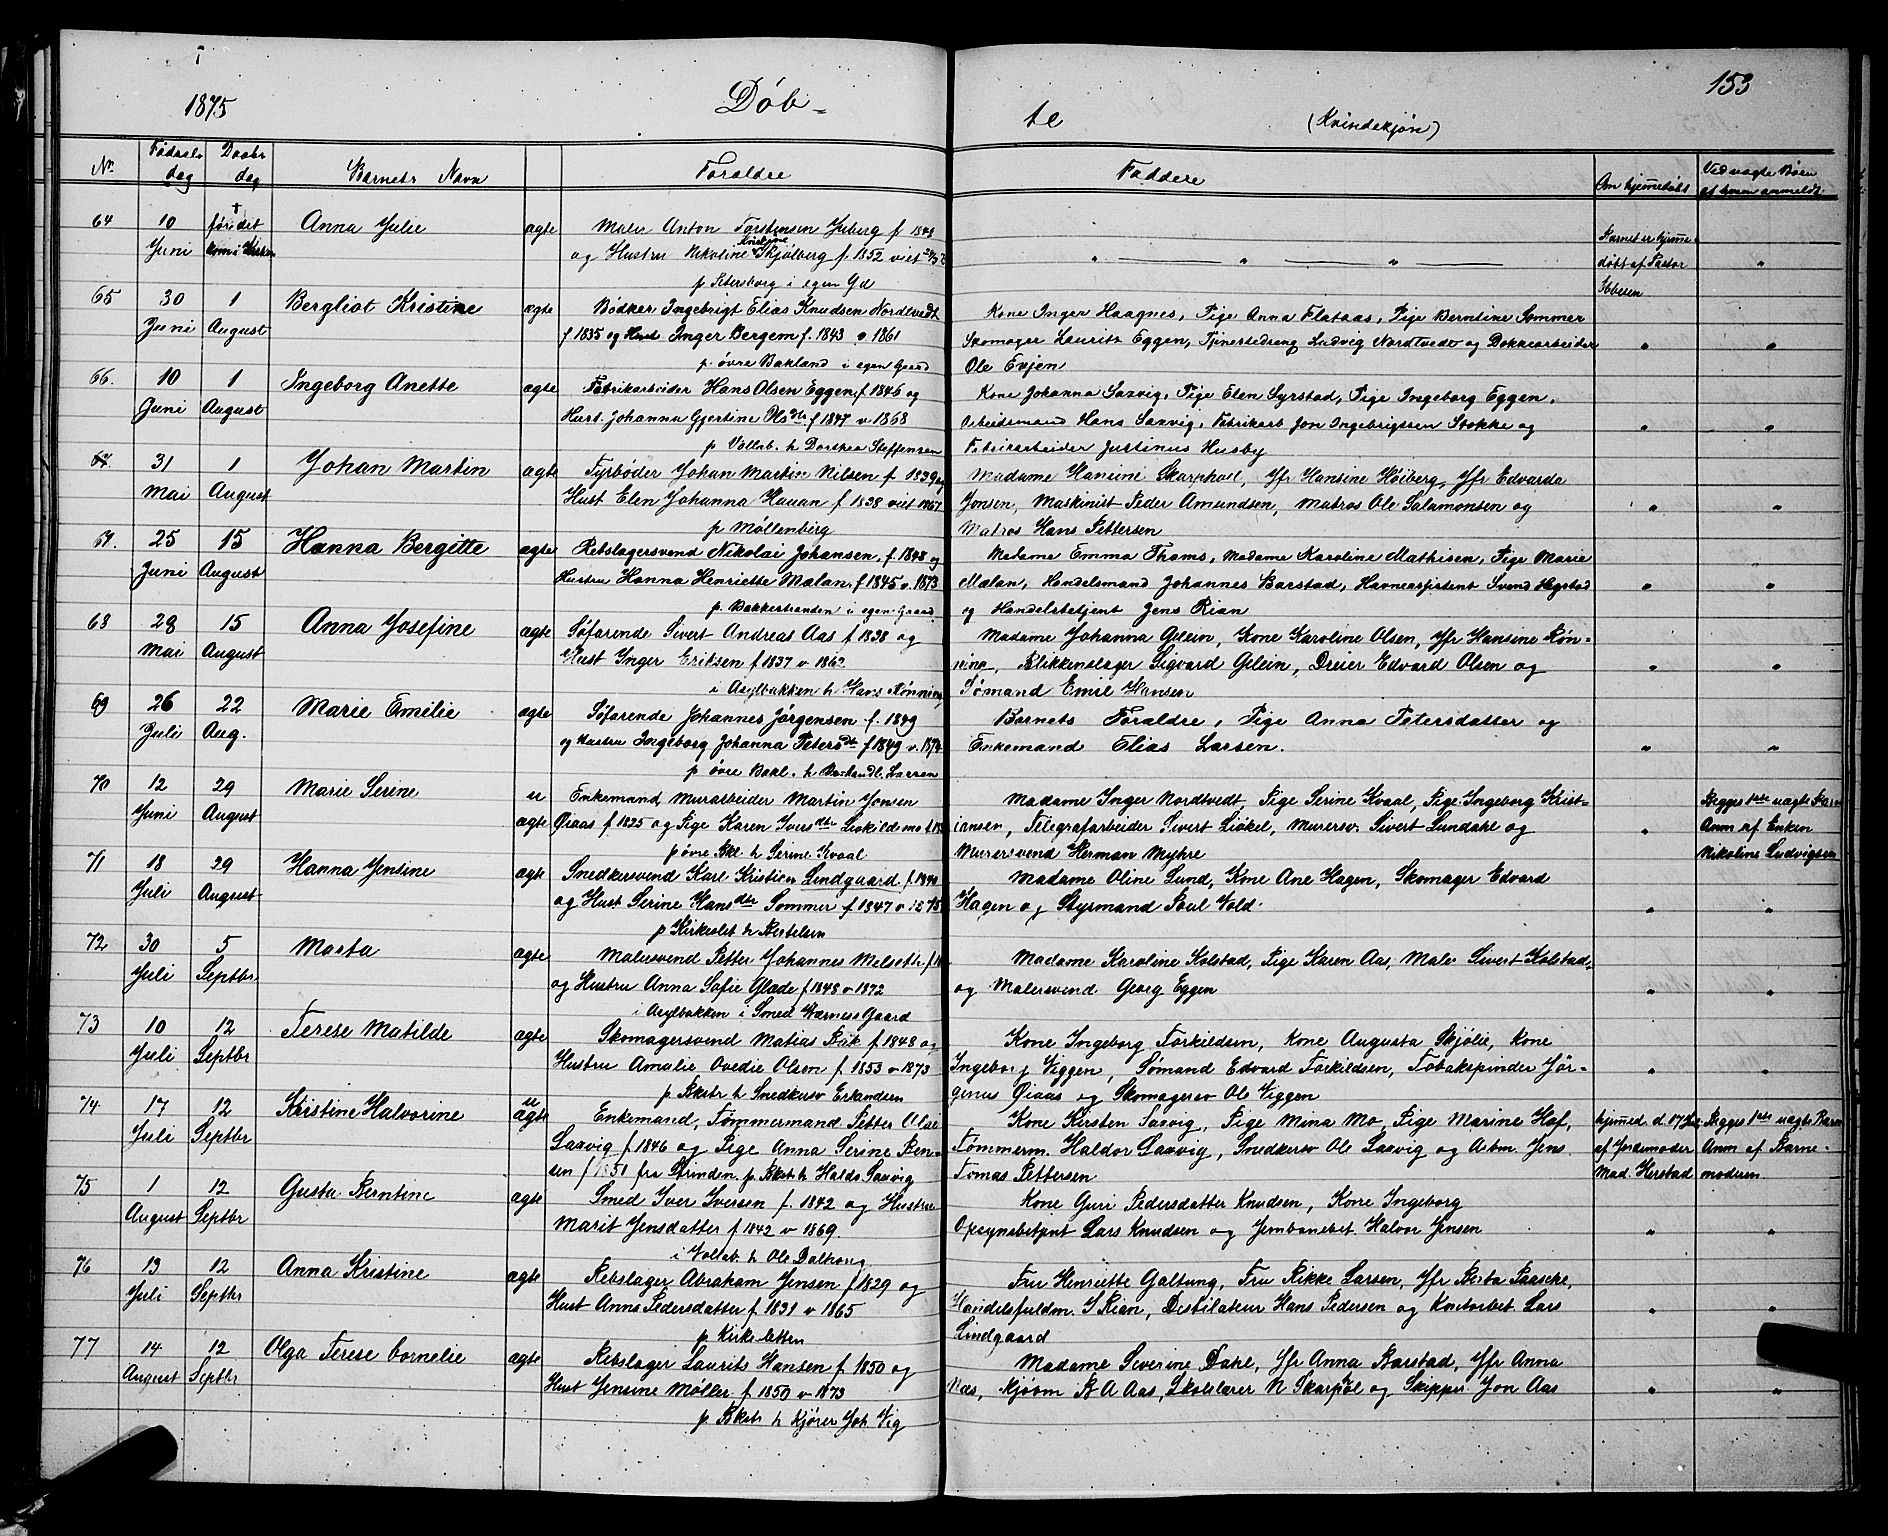 1875 Døb- te (Kvindekjøn) 153
No. Fødsels dag Daabs dag Barnets Navn Foraldre Faddere Om hjemmedøbt Ved uagte Børn af hvem anmeldt
64 10 Juni † før det kom i Kirken Anna Julie agte
Maler Anton Torstensen Juberg f 1848
og Hustru Nikoline Kristine Skjølberg f. 1852 viet
p Petersborg i egen Gd
" " "
Barnet er hjemme-
døbt af Pastor
"
65 30 Juni 1 August Bergliot Kristine agte
Bødker Ingebrigt Elias Knudsen Nordtvedt
f 1835 og Hust Inger Bergem f. 1843 v 1861
p. øvre Bakland i egen Gaard
Kone Inger Haagnes, Pige Anna Flataas, Pige Berntine Sommer
Skomager Laurits Eggen, Tjenestedreng Ludvig Nordtvedt og Dokkearbeider
Ole Evjen
" "
66. 10 Juni 1 August Ingeborg Anette agte
Fabrikarbeider Hans Olsen Eggen, f 1846 og
Hust. Johanna Gjertine Olsdtr f 1847 v 1868
p Vollab. h Dorthea Steffensen
Kone Johanna Saxvig, Pige Elen Syrstad, Pige Ingeborg Eggen,
Arbeidsmand Hans Saxvig, Fabrikarb Jon Ingebrigtsen Stokke og
Fabrikarbeider Justinus Husby
" "
67 31 Mai 1 August Johan Martin agte
Fyrbøder Johan Martin Nilsen f 1839 og
Hust Elen Johanna Hauan f 1838 viet 1867
p Møllenberg
Madame Hansine Skarphol, Jfr Hansine Høiberg, Jfr Edvarda
Jonsen, Maskinist Peder Amundsen, Matros Ole Salamonsen og
Matros Hans Pettersen
" "
67. 25 Juni 15 August Hanna Bergitte agte
Rebslagersvend Nikolai Johansen, f. 1848 og
Hustru Hanna Henriette Mælan, f 1845 v. 1873
p. Bakkestranden i egen Gaard
Madame Emma Thams, Madame Karoline Mathisen, Pige Marie
Mælan, Handelsmand Johannes Barstad, Havneassistent Svend Hegstad
og Handelsbetjent Jens Rian
" "
68 28 Mai 15 August Anna Josefine agte
Søfarende Sivert Andreas Aas f 1838 og
Hust Inger Eriksen f 1837 v 1862
i Asylbakken h Hans Rønning
Madame Johanna Gelein, Kone Karoline Olsen, Jfr Hansine Røn-
ning, Blikkenslager Sigvard Gelein, Dreier Edvard Olsen og
Sømand Emil Hansen
" "
69 26 Juli 22 Aug. Marie Emilie agte
Søfarende Johannes Jørgensen f. 1849
og Hustru Ingeborg Johanna Petersdtr f 1849 v. 1874
p øvre Bakl. h Bosthandl. Larsen
Barnets Foraldre, Pige Anna Petersdatter og
Enkemand Elias Larsen.
" "
70 12 Juni 29 August Marie Serine u agte
Enkemand Murarbeider Martin Jonsen
Øraas f 1825 og Pige Karen Iversdtr
p øvre Bkl h Serine Kvaal
Madame Inger Nordtvedt, Pige Serine Kvaal, Pige Ingeborg Krist-
iansen, Telegrafarbeider Sivert Siøkel, Murersv. Sivert Lundahl og
Murersvend Herman Myhre
"
Begges 1ste uagte Barn
Anm af Enken
Nikoline Ludvigsen
71 18 Juli 29 August Hanna Jensine agte
Snedkersvend Karl Kristian Lindgaard f. 1840
og Hust Serine Hansdtr Sommer f 1847 v 1875
p Kirkeslet h Bertelsen
Madame Oline Lund, Kone Ane Hagen, Skomager Edvard
Hagen og Styrmand Paul Vold.
" "
72 30 Juli 5 Septbr Marta agte
Malersvend Petter Johannes Melseth
og Hustru Anna Sofie Glade f 1848 v 1872
i Asylbakken i Smed Værnes Gaard
Madame Karoline Kolstad, Pige Karen Aas, Maler Sivert Kolstad
og Malersvend Georg Eggen
" "
73 10 Juli 12 Septbr Terese Matilde agte
Skomagersvend Matias Bak f 1848 og
Hustru Amalie Ovedie Olsen f 1853 v 1873
p Bkstr h Snedkersv Erlandsen
Kone Ingeborg Torkildsen, Kone Augusta Skjølie, Kone
Ingeborg Viggen, Sømand Edvard Torkildsen, Tobakspinder Jør-
genus Øiaas og Skomagersv Ole Viggen
" "
74 17 Juli 12 Septbr Kristine Halvorine u agte
Enkemand, Tømmermand Petter Olsen
Saxvig f 1846 og Pige Anna Serine Ben-
sen f 1851 fra Strinden p Bkst h Haldo Saxvig
Kone Kirsten Saxvig, Pige Mina Mo, Pige Marine Hof,
Tømmerm. Haldor Saxvig, Snedkersv Ole Saxvig og Arbm. Jens
Tomas Pettersen
hjemmed d. 17 Juli
af Jordemoder
Mad. Herstad
Begges 1ste uagte Barn
Anm af Barne-
moderen
75 1 August 12 Septbr Gusta Berntine agte
Smed Iver Iversen f. 1842 og Hustru
Marit Jensdatter f 1842 v 1869.
i Vollab. h Ole Dalhaug
Kone Guri Pedersdatter Knudsen, Kone Ingeborg
Opsynsbetjent Lars Knudsen og Jernbanebet. Halvor Jensen
" "
76 13 Juli 12 Septbr Anna Kristine agte
Rebslager Abraham Jensen f 1829 og
Hust Anna Pedersdatter f 1831 v 1865
p Kirkesletten
Fru Henriette Galtung, Fru Rikke Larsen, Jfr Berta Paasche,
Handelsfuldm. I Rian, Destilateur Hans Pedersen og Kontorbet Lars
Lindgaard
" "
77 14 August 12 Septbr Olga Terese Cornelie agte
Rebslager Laurits Hansen f 1850 og
Hust Jensine Møller f 1850 v 1873
p Bkstr h Kjører Joh Vig
Madame Severine Dahl, Jfr Anna Barstad, Jfr Anna
Næs, Kjøbm B A Aas, Skolelærer N Skarphol og Skipper Jon Aas
" "